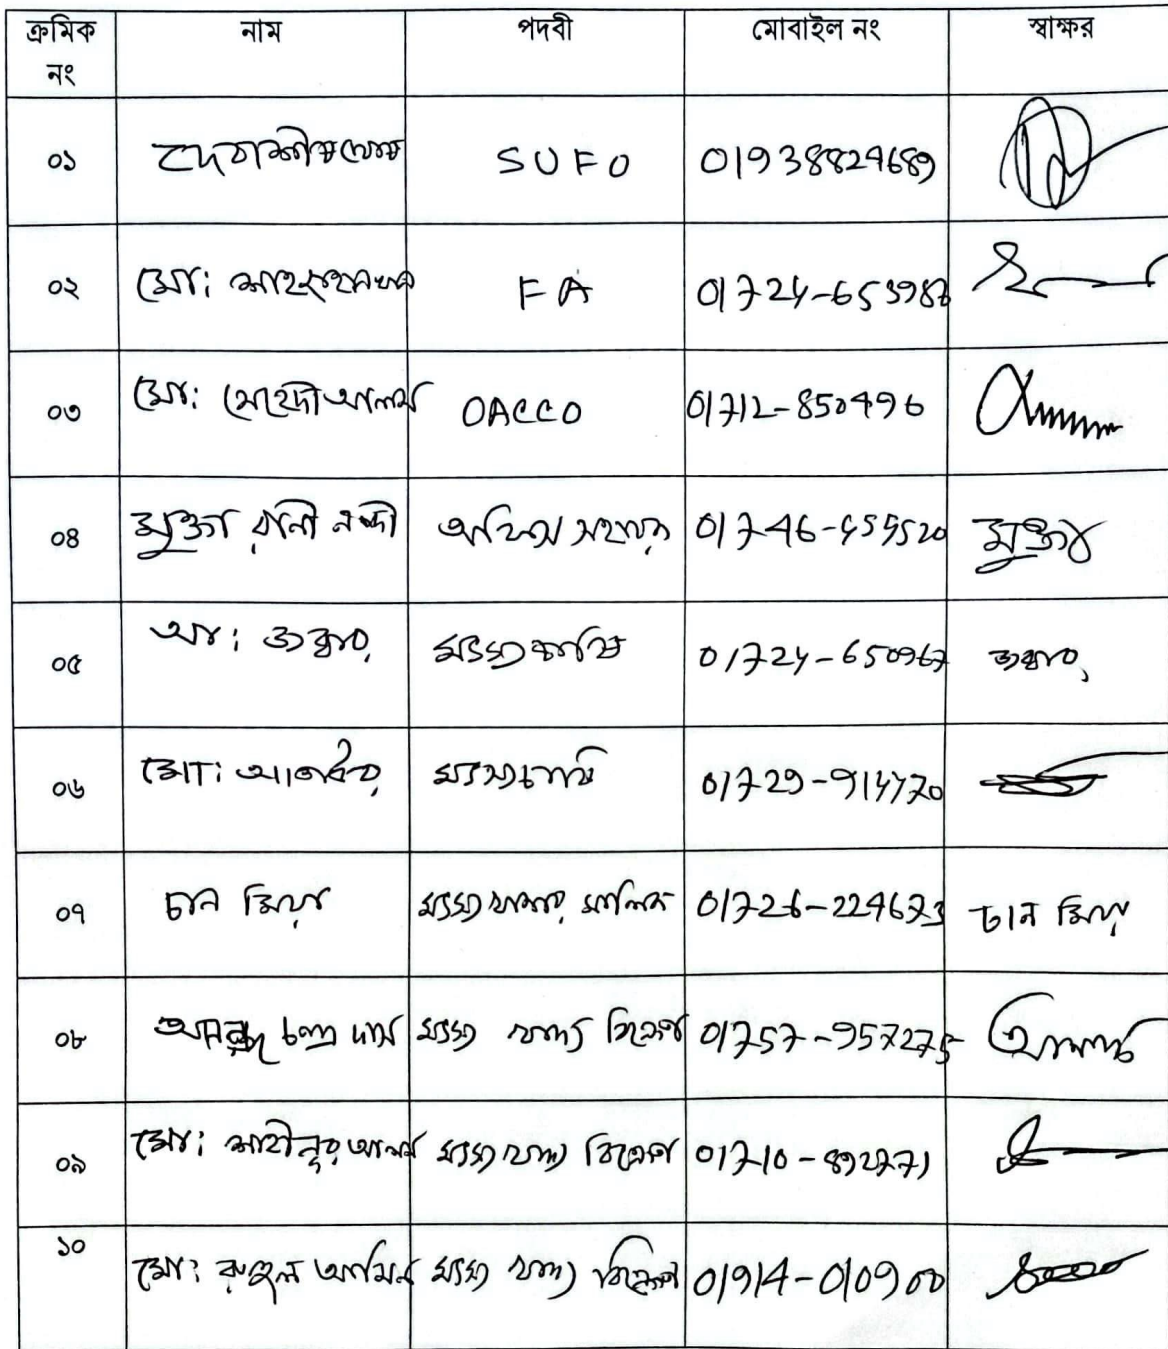 ক্রমিক নং | নাম | পদবী | মোবাইল নং | স্বাক্ষর
০১ | দেবাশীষ ঘোষ | SUFO | 01938824689
০২ | মো: | FA | 01724-653983
০৩ | মো: মেহেদী আলম | OACCO | 01712-850496
০৪ | মুক্তা রানী নন্দী | অফিস সহায়ক | 01746-454520 | মুক্তা
০৫ | আ: জব্বার | মৎস্যচাষি | 01724-650967 | জব্বার
০৬ | মো: | মৎস্যচাষি | 01729-914770
০৭ | চান মিয়া | মৎস্য খামার মালিক | 01726-224673 | চান মিয়া
০৮ | চন্দ্র দাস | মৎস্য খাদ্য বিক্রেতা | 01757-957275
০৯ | মো: শাহীনুর আলম | মৎস্য খাদ্য বিক্রেতা | 01710-892771
১০ | মো: রুহুল আমিন | মৎস্য খাদ্য বিক্রেতা | 01914-010900